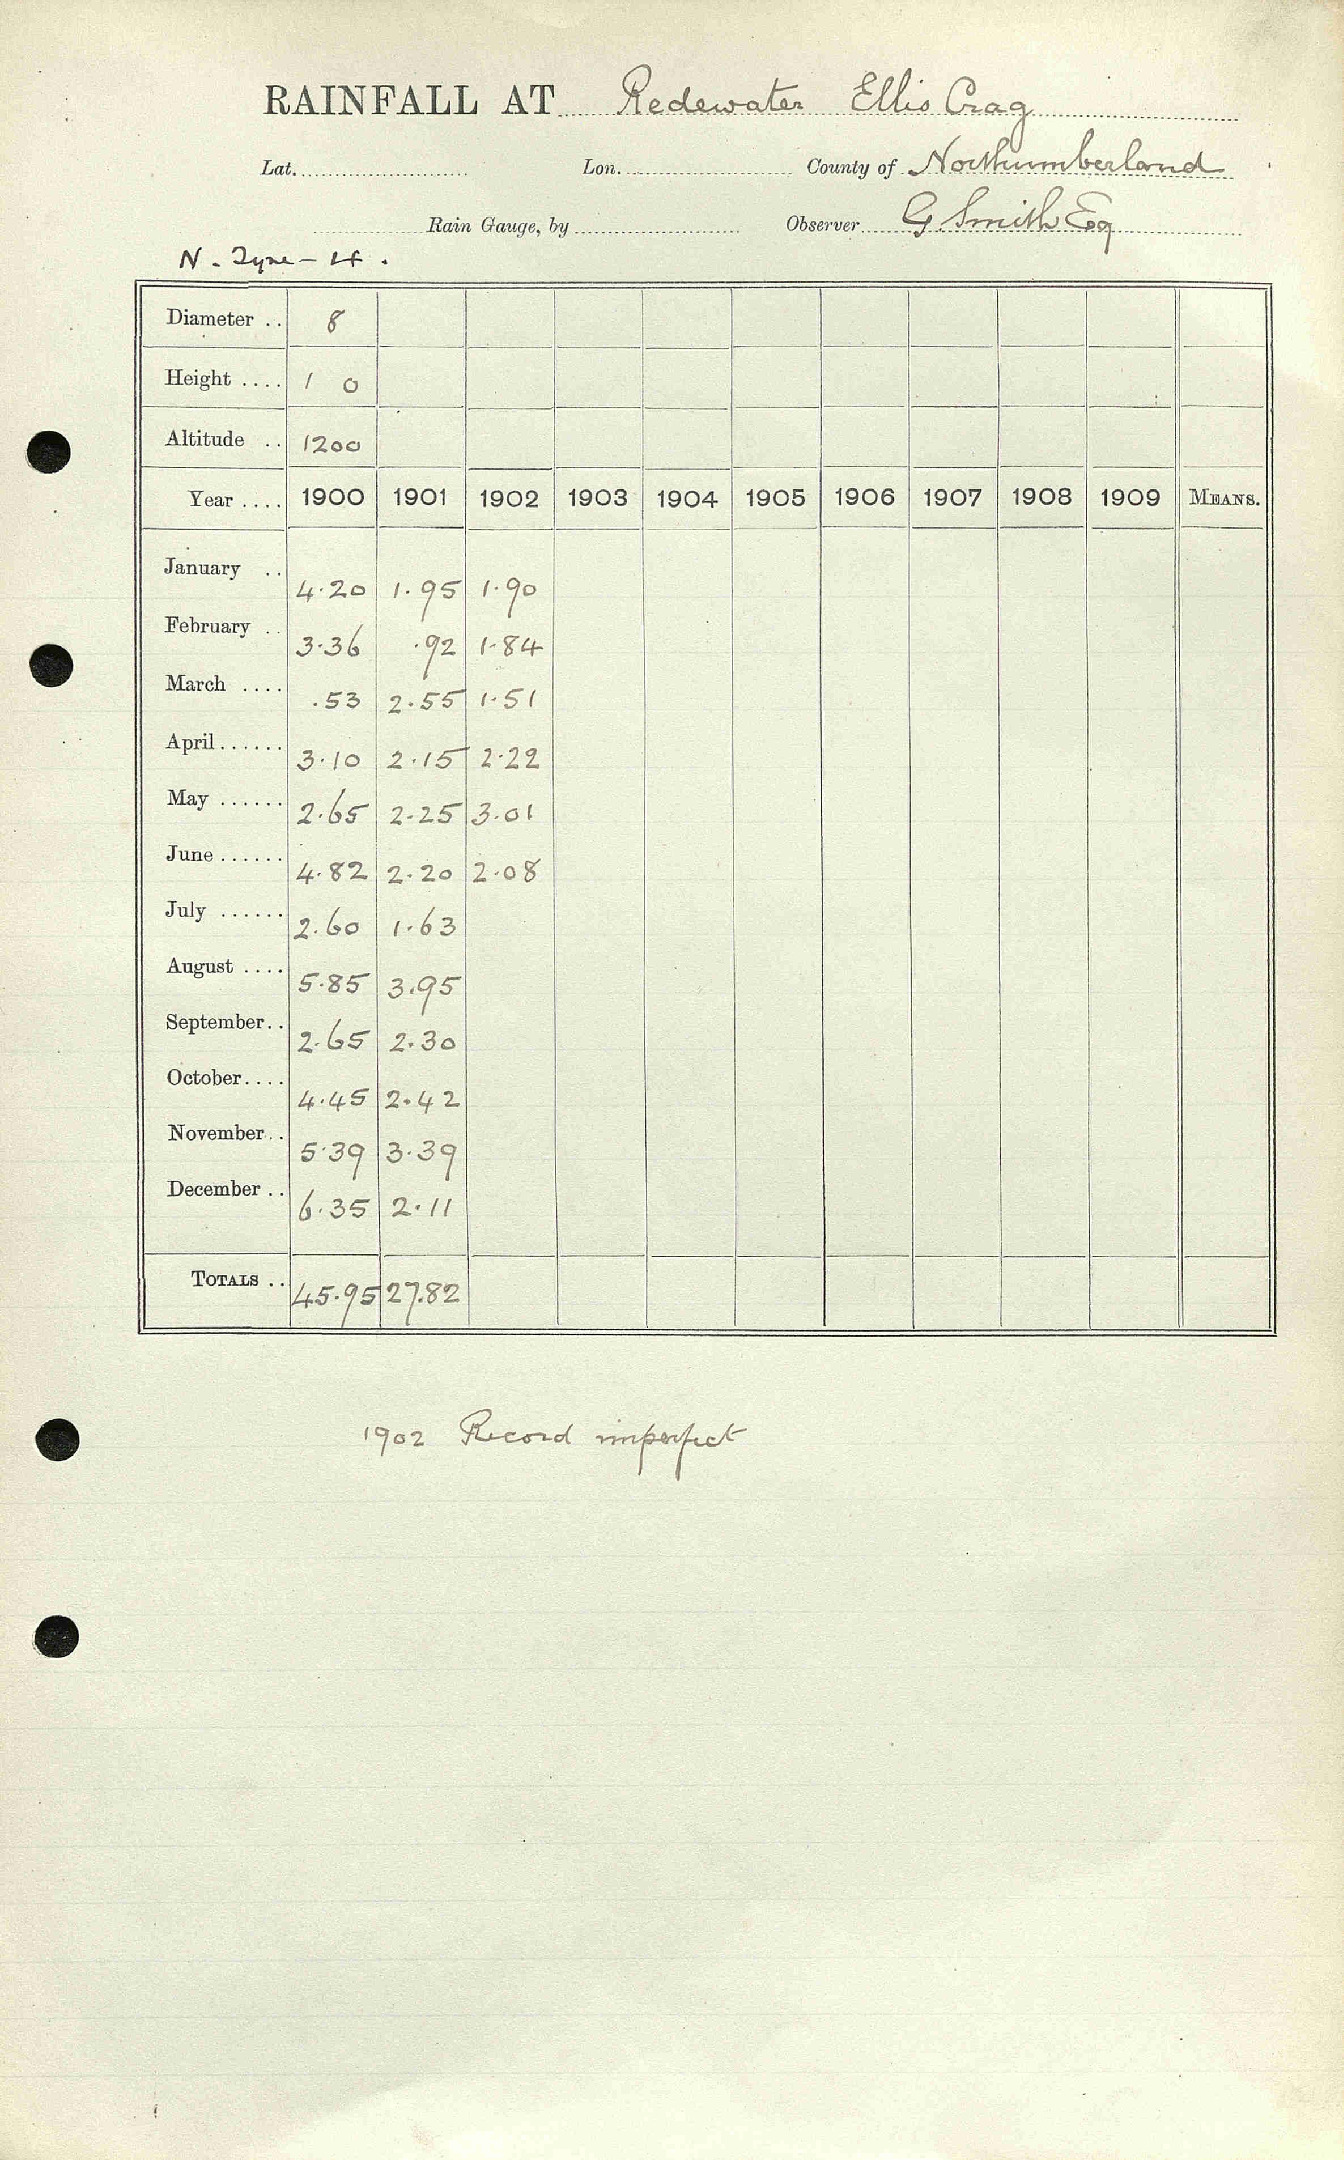 RAINFALL AT Redewater Ellis Crag
Lat. Lon. County of Northumberland
Rain Gauge, by Observer G Smith Esq
N. Tyne -
Diameter .. 8
Height .... 1 0
Altitude .. 1200
Year .... 1900 1901 1902 1903 1904 1905 1906 1907 1908 1909 MEANS.
January .. 4.20 1.95 1.90
February .. 3.36 .92 1.84
March .... .53 2.55 1.51
April...... 3.10 2.15 2.22
May ...... 2.65 2.25 3.01
June...... 4.82 2.20 2.08
July ...... 2.60 1.63
August .... 5.85 3.95
September.. 2.65 2.30
October.... 4.45 2.42
November.. 5.39 3.39
December .. 6.35 2.11
TOTALS .. 45.95 27.82
1902 Record imperfect